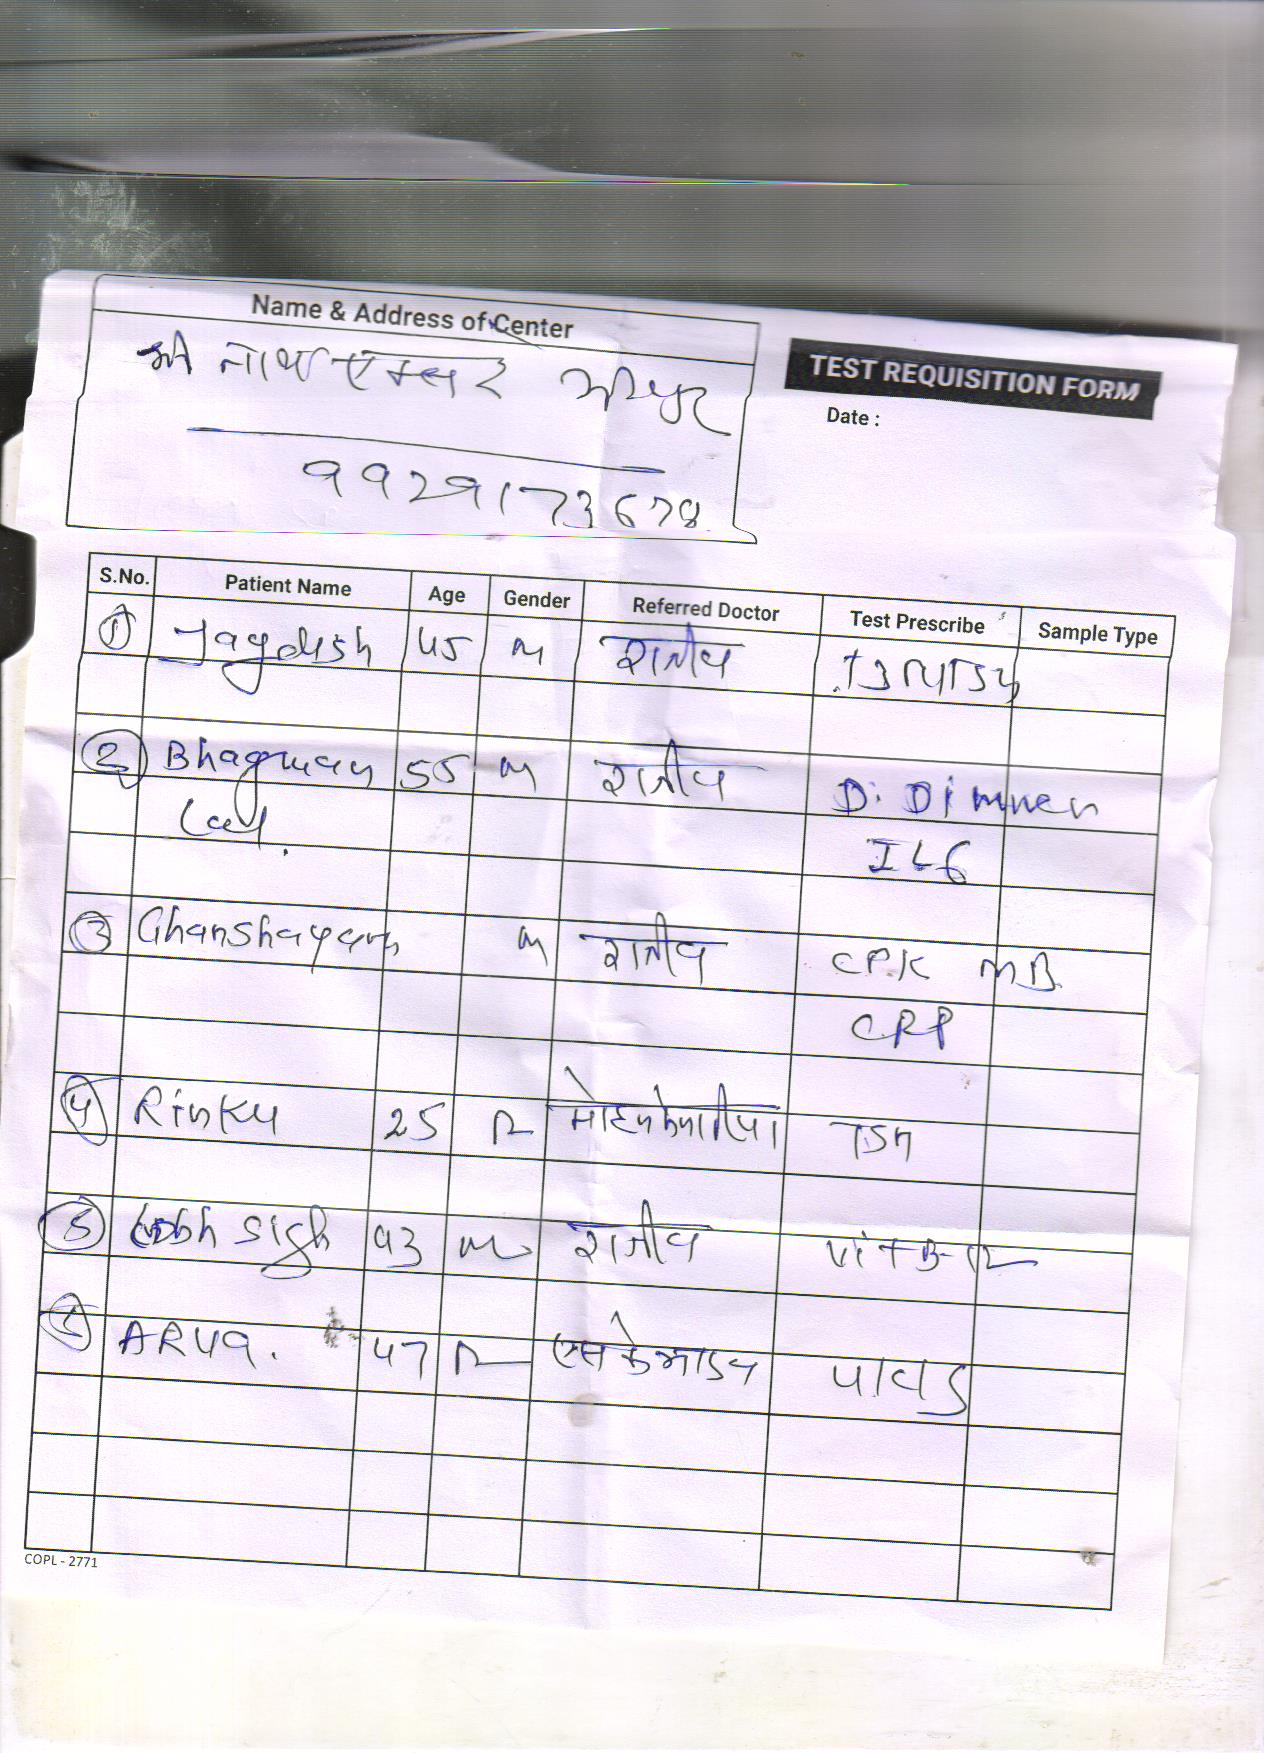 Name & Address of Center
श्री नाथ एक्सरे
9929173678
TEST REQUISITION FORM
Date :
S.No. Patient Name Age Gender Referred Doctor Test Prescribe Sample Type
1 Jagdish 45 M राजीव
2 Bhagwan 55 M राजीव D. Dimmer
Lal. IL6
3 Ghanshayam M राजीव CPK MB
CRP
4 Rinku 25 मोहन
5 sigh 93 M राजीव Vit B-12
ARUA. 47
COPL - 2771